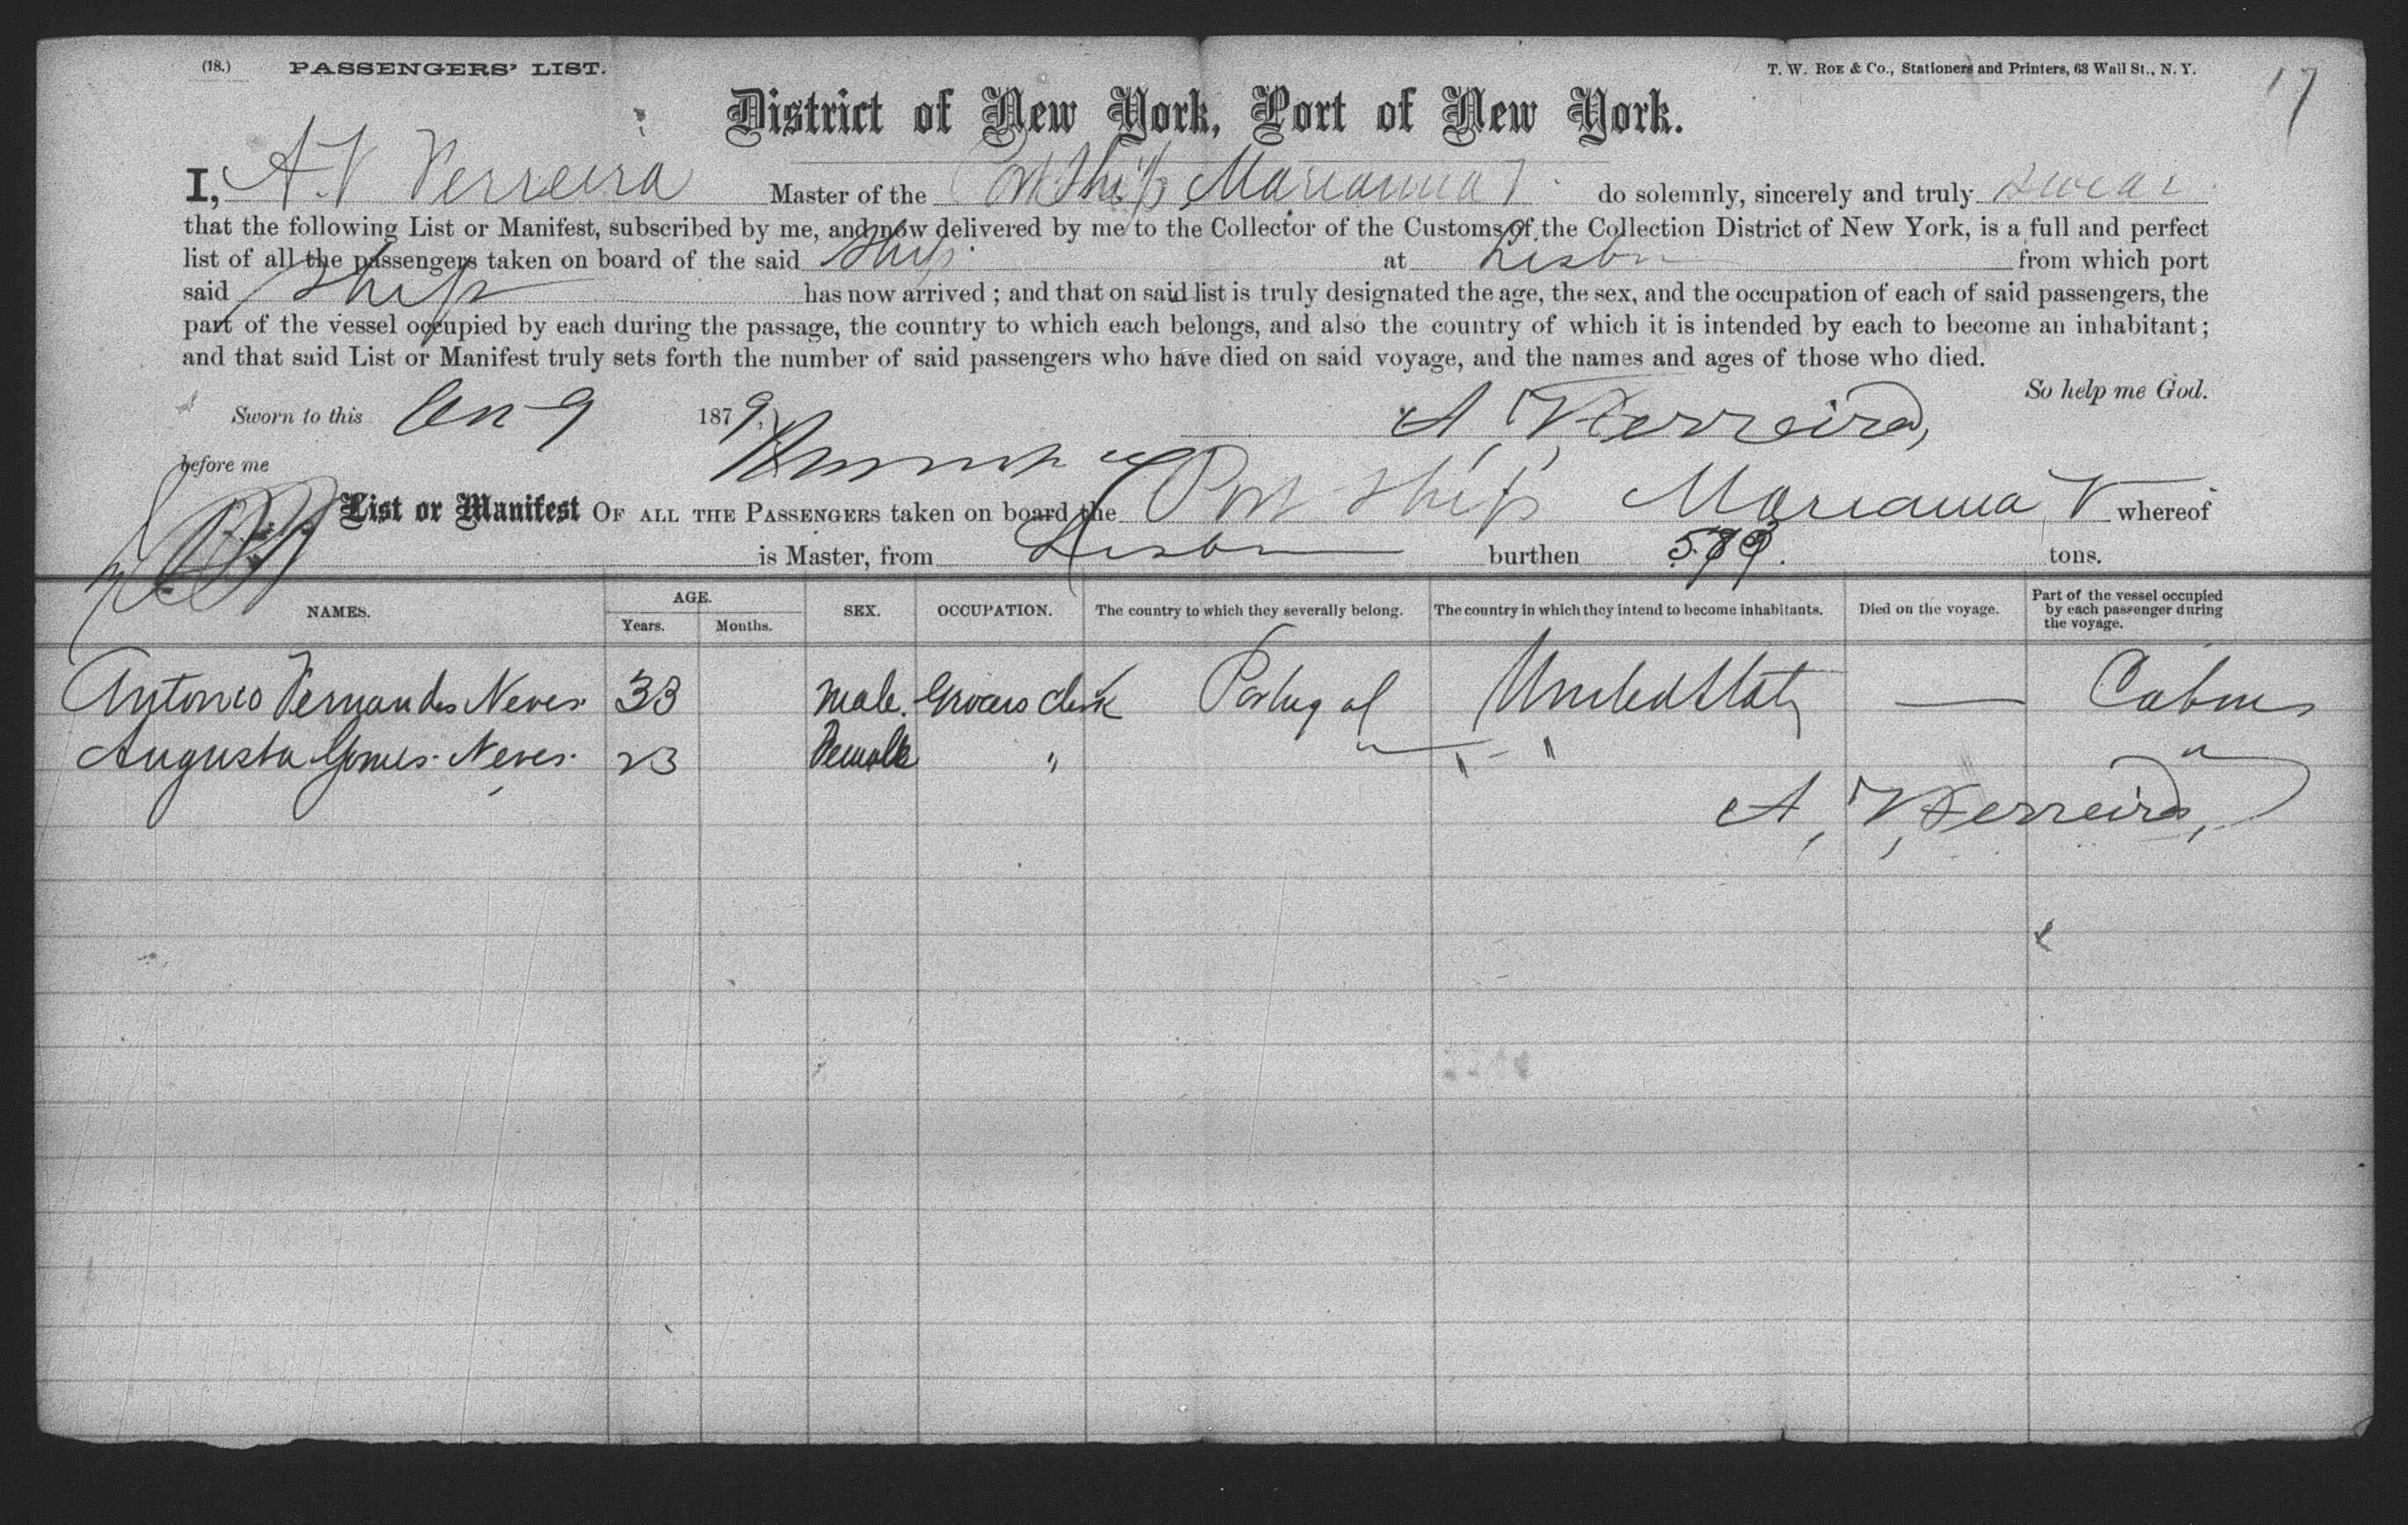 (18.) PASSENGERS' LIST. T. W. ROE & Co., Stationers and Printers, 63 Wall St., N. Y. 17
District of New York, Port of New York.
I, A. V Ferreira Master of the Port Ship Marianna V do solemnly, sincerely and truly swear
that the following List or Manifest, subscribed by me, and now delivered by me to the Collector of the Customs of the Collection District of New York, is a full and perfect
list of all the passengers taken on board of the said Ship at Lisbon from which port
said Ship has now arrived ; and that on said list is truly designated the age, the sex, and the occupation of each of said passengers, the
part of the vessel occupied by each during the passage, the country to which each belongs, and also the country of which it is intended by each to become an inhabitant ;
and that said List or Manifest truly sets forth the number of said passengers who have died on said voyage, and the names and ages of those who died.
So help me God.
Sworn to this 9 1879, A, V, Ferreira,
before me
List or Manifest OF ALL THE PASSENGERS taken on board the Port Ship Marianna V whereof
is Master, from Lisbon burthen tons.
NAMES. AGE. SEX. OCCUPATION. The country to which they severally belong. The country in which they intend to become inhabitants. Died on the voyage. Part of the vessel occupied by each passenger during the voyage.
Years. Months.
Antonio Fernandes Neves 33 Male. Grocers clerk Portugal United States — Cabin
Augusta Gomes Neves 23 Female " " - " "
A, V, Ferreira,